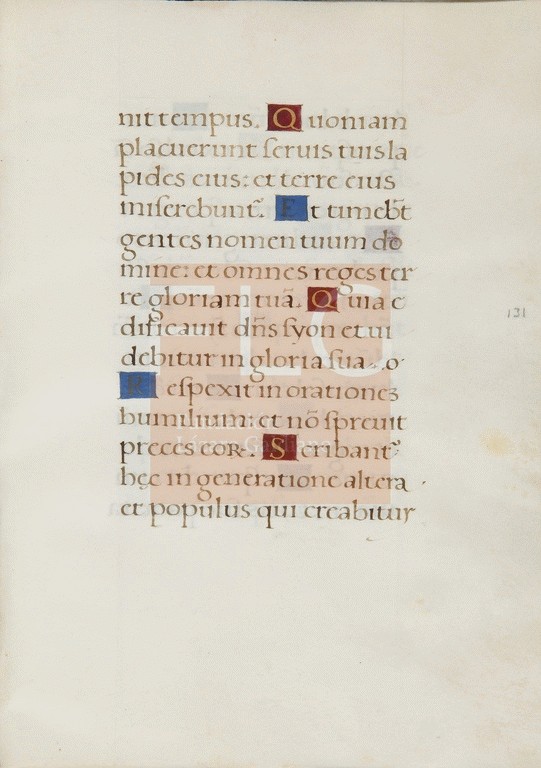 nit tempus. Quoniam
placuerunt seruis tuis la
pides eius: et terre eius
miserebunt᷑. Et timebt̄
gentes nomen tuum do
mine: et omnes reges ter
re gloriam tuā. Quia e
dificauit dn̄s syon et ui
debitur in gloria sua.
Respexit in orationez
humilium et nō spreuit
preces eoꝝ. Scribant᷑
hęc in generatione altera
et populus qui creabitur
131
FLG
Lázaro Galdiano